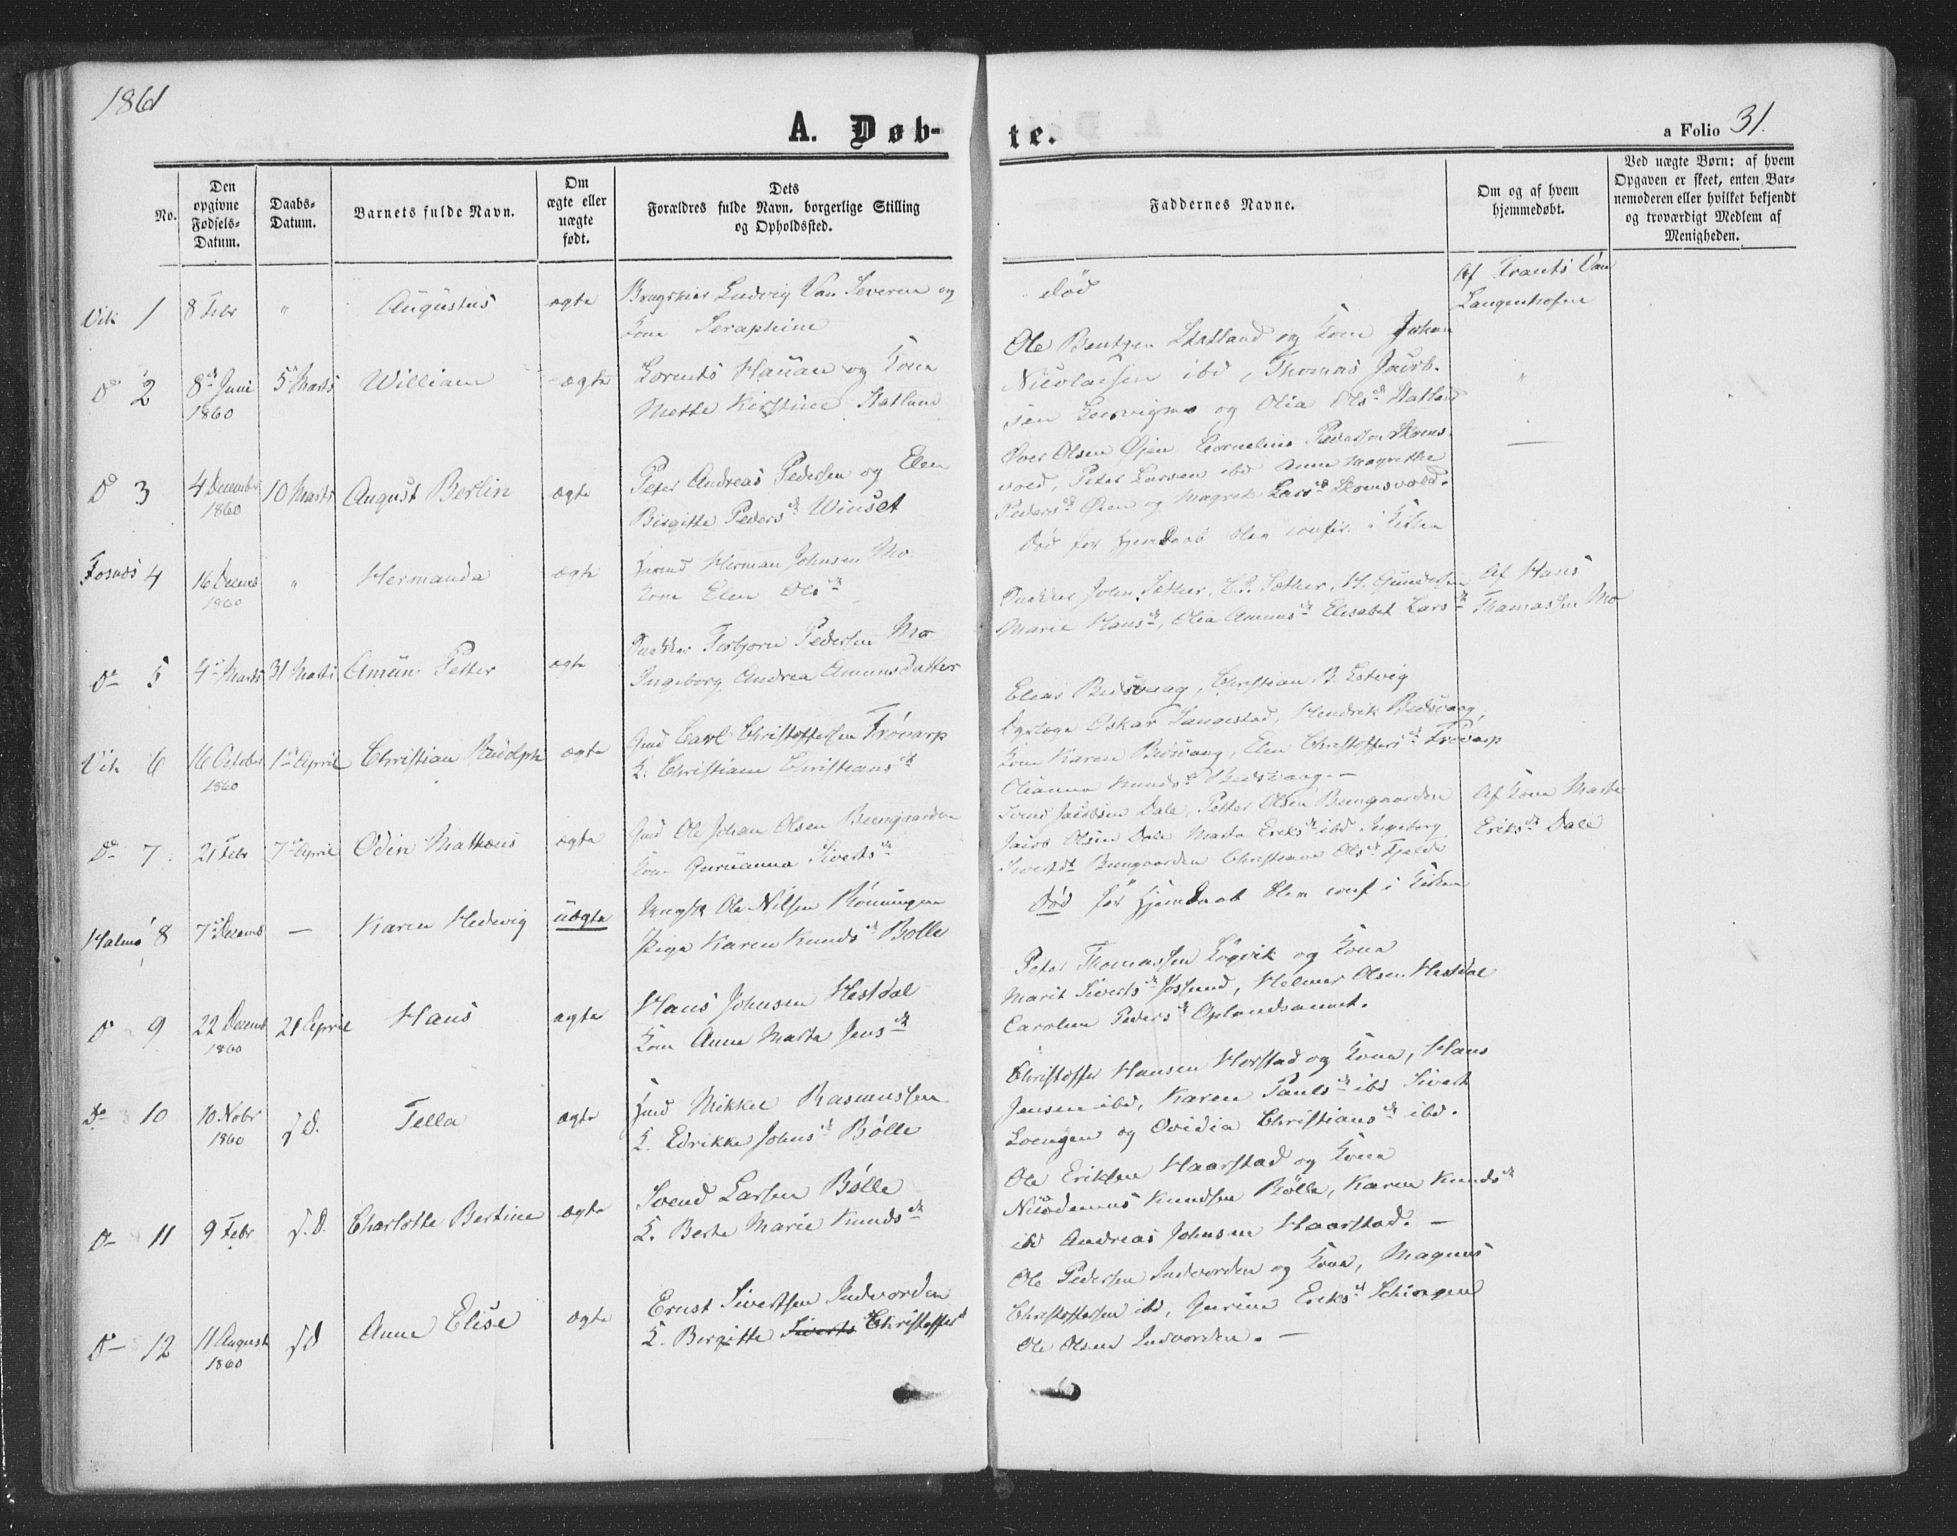 1861
A. Døb-
te.
a Folio 31.
No.
Den
opgivne
Fødsels-
Datum.
Daabs-
Datum.
Barnets fulde Navn.
Om
ægte eller
uægte
født.
Dets
Forældres fulde Navn, borgerlige Stilling
og Opholdssted.
Faddernes Navne.
Om og af hvem
hjemmedøbt.
Ved uægte Børn: af hvem
Opgaven er skeet, enten Bar-
nemoderen eller hvilket bekjendt
og troværdigt Medlem af
Menigheden.
Vik 1 8 Febr " Augustus ægte
Ludvig Van Severen og
Kone Seraphine
død
Af Frants Van
Langenhofen
Do 2 8de Juni 1860 5 Marts William ægte
Lorents Hauan og Kone
Mette Kirstine Statland
Ole Bentzen Statland og Kone Johan
Nicolaisen ibd, Thomas Jacob-
sen og Olia Olsdr Statland
Do 3 4 December 1860 10 Marts August Berlin ægte
Peter Andreas Pedersen og Elen
Birgitte Pedersdr Winset
Iver Olsen Øjen Cornelius Pedersen Skoms-
vold, Peter Larsen ibd Anne Magrethe
Pedersdr Øien og Magreth Larsdr Skomsvold.
Fosnæs 4 16 Decemb 1860 " Hermanda ægte
Herman Johnsen Mo
Kone Elen Olsdr
Død før Hjemdaab blev confir. i Kirken
Do 5 4de Marts 31 Marts Amun Petter ægte
Torbjørn Pedersen Mo
Ingeborg Andrea Amunsdatter
John Sæther, Sæther, H. Gundersen
Marie Hansdr, Olia Amunsdr Elisabet Larsdr
Af Hans
Thomassen Mo
Vik 6 16 October 1860 1ste April Christian Rudolph ægte
Gmd Carl Christoffersen Frøvarp
K. Christiane Christiansdr
Elias Bedsvaag, Christian B. Estvig
Oskar Tangestad, Hendrik Bedsvaag,
Kone Karen Bedsvaag, Elen Christoffersdr Frøvarp
Olianna Knudsdr Bedsvaag. —
Do 7 21 Febr 7de April Odin Mathæus ægte
Gmd Ole Johan Olsen Buungaarden
Kone Guruanna Sivertsdr
Svend Jacobsen Dale, Petter Olsen Buungaarden
Jacob Olsen Dale Marta Eriksdr ibd Ingeborg
Sivertsdr Buungaarden Christiane Olsdr Fjeldr
Af Kone Marta
Eriksdr Dale
Halmø 8 7de Decemb — Karen Hedevig uægte
Ungk Ole Nilsen Rønningen
Pige Karen Knudsdr Bølle
Død før Hjemdaab blev conf i Kirken
Do 9 22 Decemb 1860 21 April Hans ægte
Hans Johnsen Hestdal
Kone Anne Marta Jensdr
Peter Thomassen Løgvik og Kone
Marit Sivertsdr Joslund, Helmer Olsen Hestdal
Caroline Pedersdr Oplandsaunet.
Do 10 10 Nobr 1860 s D. Tella ægte
Hmd Mikkel Rasmussen
K. Edrikke Johnsdr Bølle
Christoffer Hansen Horstad og Kone, Hans
Jensen ibd, Karen Paulsdr ibd Sivert
Loengen og Ovidia Christiansdr ibd.
Do 11 9 Febr s. D. Charlotte Bertine ægte
Svend Larsen Bølle
K. Berte Marie Knudsdr
Ole Eriksen Haarstad og Kone
Nicodemus Knudsen Bølle, Karen Knudsdr
ibd Andreas Johnsen Haarstad. —
Do 12 11 August 1860 s D Anne Elise ægte
Ernst Sivertsen Indvorden
K. Bergitte Siverts Christoffersdr
Ole Pedersen Indvorden og Kone, Magnus
Christoffersen ibd, Gurine Eriksdr Schingen
Ole Olsen Indvorden. —